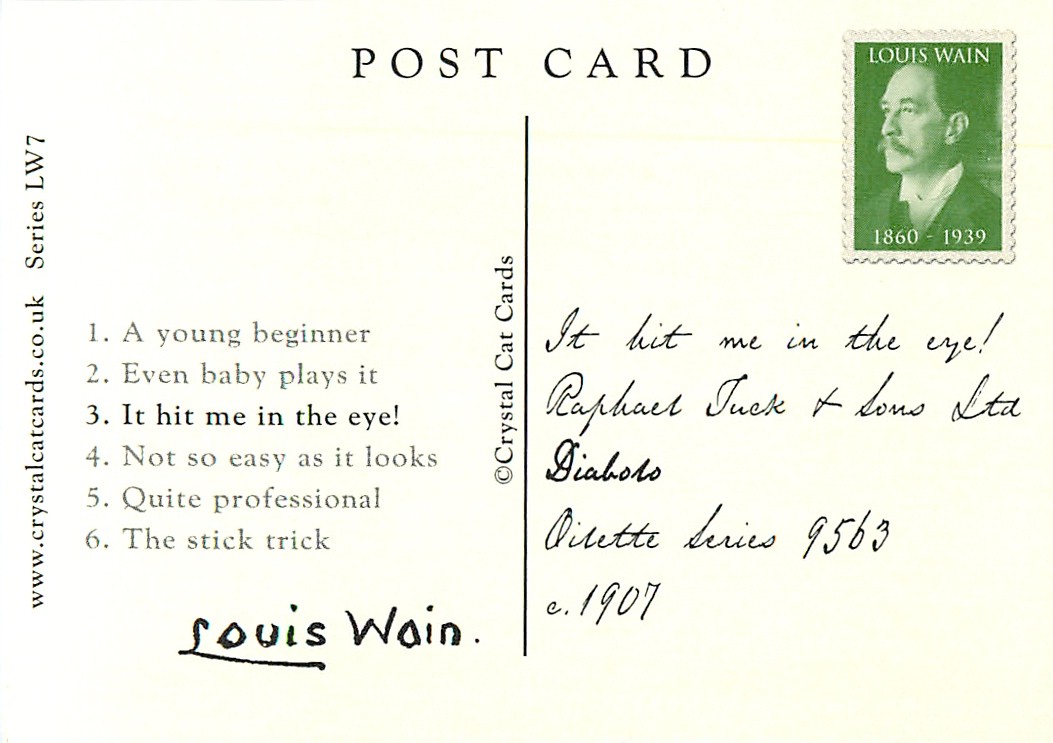 POST CARD
LOUIS WAIN
1860 - 1939
www.crystalcatcards.co.uk Series LW7
1. A young beginner
2. Even baby plays it
3. It hit me in the eye!
4. Not so easy as it looks
5. Quite professional
6. The stick trick
Louis Wain.
©Crystal Cat Cards
It hit me in the eye!
Raphael Tuck & Sons Ltd
Diabolo
Oilette Series 9563
c.1907